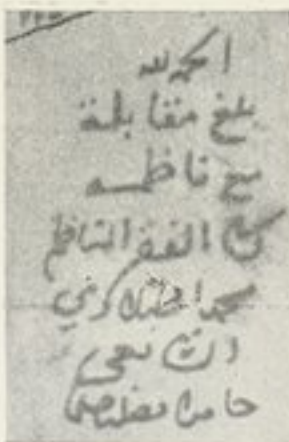 الحمد لله
بلغ مقابلة
مع ناظمه
كتبه الفقير الناظم
محمد
الشافعي
حامدا مصليا